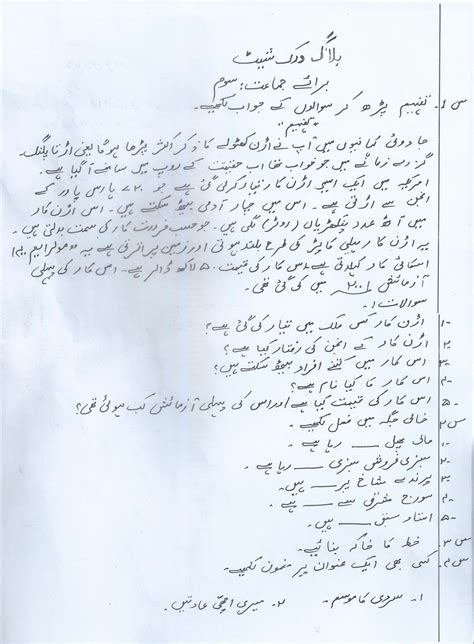 بلاگ ورک شیٹ
برائے جماعت: سوم
س 1۔ تفہیم پڑھ کر سوالوں کے جواب لکھیے۔
"تفہیم"
جادوئی کہانیوں میں آپ نے اڑن کھٹولے کا ذکر اکثر پڑھا ہوگا یعنی اڑتا پلنگ۔
گزرے زمانے میں جو خواب تھی اب حقیقت کے روپ میں سامنے آگیا ہے۔
امریکہ میں ایک ایسی اڑن کار تیار کرلی گئی ہے جو ۷۲۰ ہارس پاور کے
انجن سے اڑتی ہے۔ اس میں چار آدمی بیٹھ سکتے ہیں۔ اس اڑن کار
میں آٹھ عدد پنکھڑیاں (روٹر) لگی ہیں۔ جو حسب ضرورت کار کی سمت بدلتی ہیں۔
یہ اڑن کار ہیلی کاپٹر کی طرح بلند ہوتی اور زمین پر اترتی ہے یہ "مولر ایم ۴۰۰
اسکائی کار کہلاتی ہے۔ اس کار کی قیمت ۵ لاکھ ڈالر ہے۔ اس کار کی پہلی
آزمائش ۲۰۰۱ میں کی گئی تھی۔
سوالات:
۱۔ اڑن کار کس ملک میں تیار کی گئی ہے؟
۲۔ اڑن کار کے انجن کی رفتار کیا ہے؟
۳۔ اس کار میں کتنے افراد بیٹھ سکتے ہیں؟
۴۔ اس کار کا کیا نام ہے؟
۵۔ اس کار کی قیمت کیا ہے اور اس کی پہلی آزمائش کب ہوئی تھی؟
س ۲۔ خالی جگہ میں فعل لکھیے۔
۱۔ مالی پھل ____ رہا ہے۔
۲۔ سبزی فروش سبزی ____ رہا ہے۔
۳۔ پرندے شاخ پر ____ ہیں۔
۴۔ سورج مشرق سے ____ ہے۔
۵۔ استاد سبق ____ ہیں۔
س ۳۔ خط کا خاکہ بنائیے۔
س ۴۔ کسی بھی ایک عنوان پر مضمون لکھیے۔
۱۔ سردی کا موسم۔ ۲۔ میری اچھی عادتیں۔